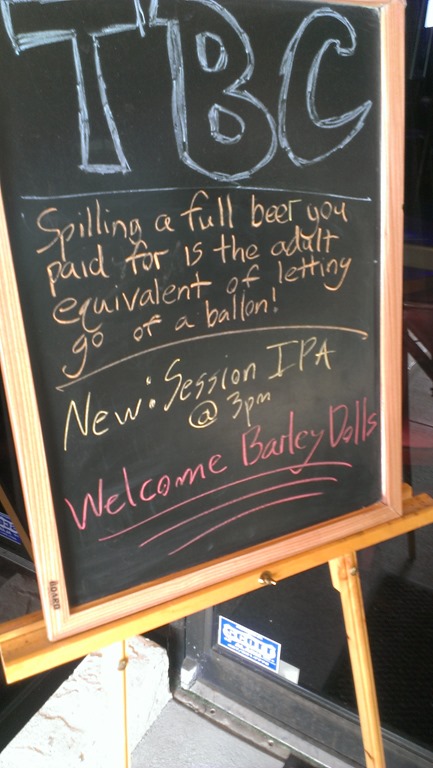 TBC
Spilling a full beer you
paid for is the adult
equivalent of letting
go of a ballon!
New: Session IPA
@ 3pm
Welcome Barley Dolls
BOARD